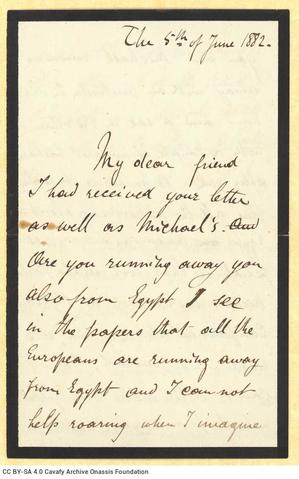 The 5th of June 1882.
My dear friend
I had received your letter
as well as Michael's. And
Are you running away you
also from Egypt I see
in the papers that all the
Europeans are running away
from Egypt and I can not
help roaring when I imagine
CC BY-SA 4.0 Cavafy Archive Onassis Foundation